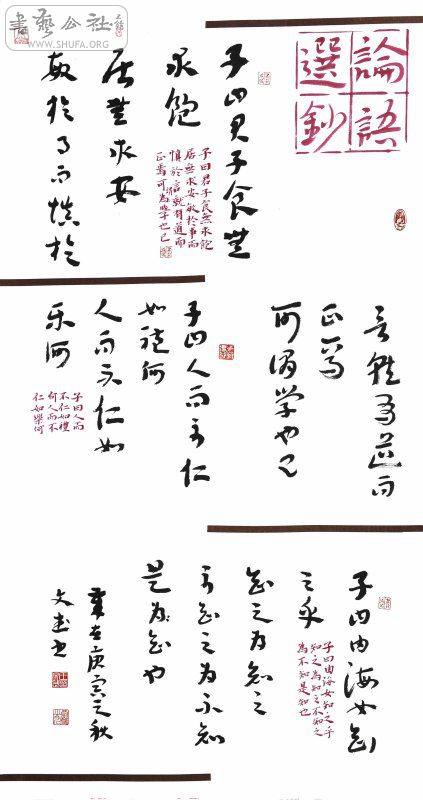 書藝公社
WWW.SHUFA.ORG
論語
選鈔
子曰君子食無
求飽
子曰君子食無求飽
居無求安敏於事而
慎於言就有道而
正焉可為學也已
居無求安
敏於事而慎於
言就有道而
正焉
可謂学也已
子曰人而不仁
如禮何
人而不仁如
乐何
子曰人而
不仁如禮
何人而不
仁如樂何
子曰由誨女知
之乎
子曰由誨女知之乎
知之為知之不知之
為不知是知也
知之為知之
不知之為不知
是為知也
歲在庚寅之秋